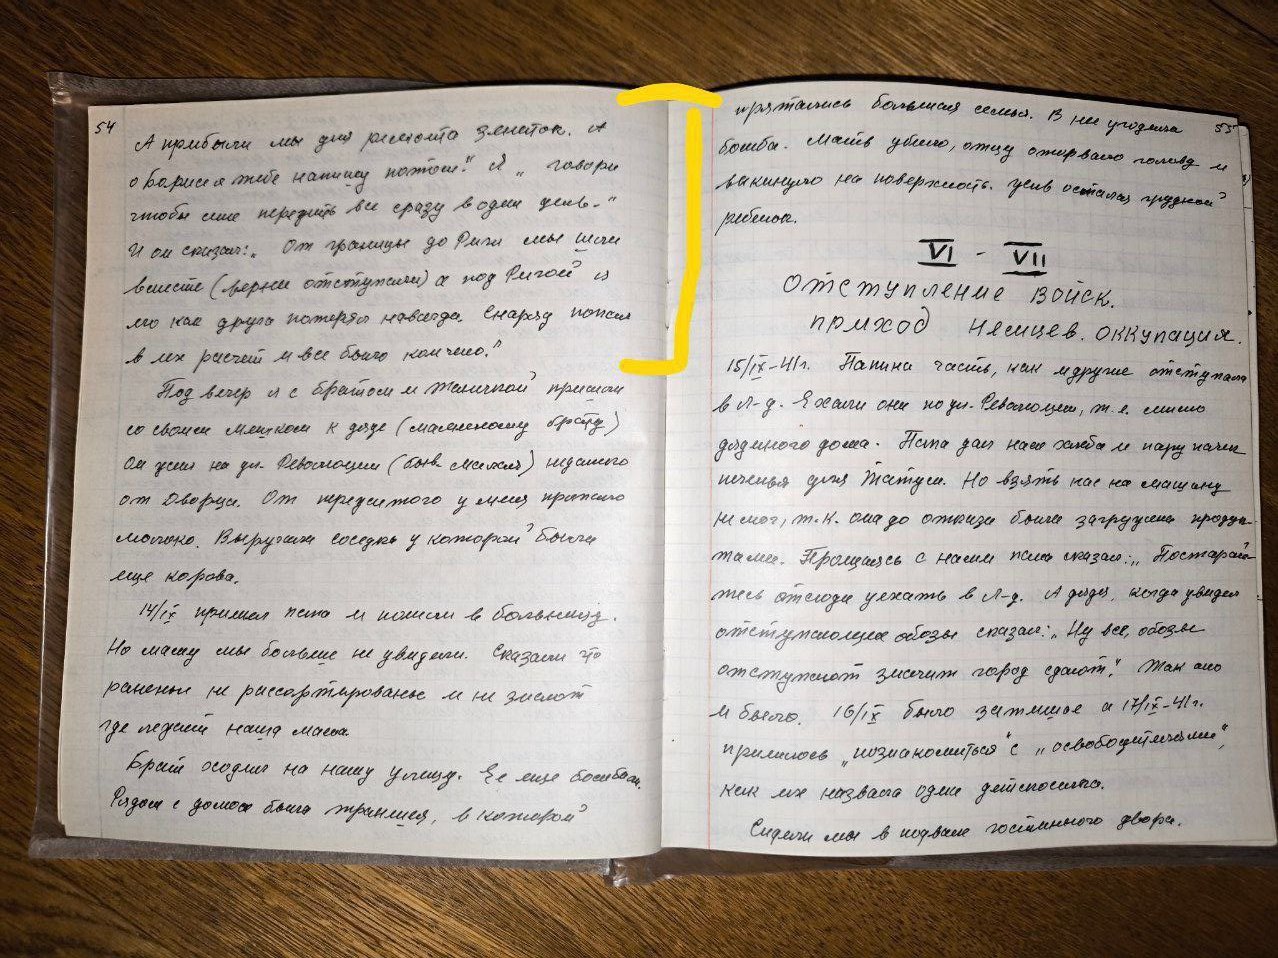 54
А прибыли мы для ремонта зениток. А
о Борисе я тебе напишу потом." Я „ говори
чтобы мне пережить все сразу в один день."
И он сказал: „ От границы до Риги мы шли
вместе (верней отступали) а под Ригой я
его как друга потерял навсегда. Снаряд попал
в их расчет и все было кончено."
Под вечер я с братом и Женичкой пришли
со своим мешком к дяде (маминому брату)
Он жил на ул. Революции (бывш. ) недалеко
от Дворца. От пережитого у меня пропало
молоко. Выручила соседка у которой была
еще корова.
14/IX пришел папа и пошли в больницу.
Но маму мы больше не увидели. Сказали что
раненые не рассортированые и не знают
где лежит наша мама
Брат сходил на нашу улицу. Ее еще бомбили.
Рядом с домом была траншея, в которой
55
пряталась большая семья. В нее угодила
бомба. Мать убило, отцу оторвало голову и
выкинуло на поверхность. Жив остался грудной
ребенок.
VI - VII
ОТСТУПЛЕНИЕ ВОЙСК.
ПРИХОД НЕМЦЕВ. ОККУПАЦИЯ.
15/IX-41г. Папина часть, как и другие отступала
в Л-д. Ехали они по ул. Революции, т.е. мимо
дядиного дома. Папа дал нам хлеба и пару пачек
печенья для Татуси. Но взять нас на машину
не мог, т.к. она до отказа была загружена продук-
тами. Прощаясь с нами папа сказал: „ Постарай-
тесь отсюда уехать в Л-д. А дядя, когда увидел
отступающие обозы сказал: „ Ну все, обозы
отступают значит город сдают". Так оно
и было. 16/IX было затишье а 17/IX-41г.
пришлось „познакомиться" с „освободителями",
как их назвала одна
Сидели мы в подвале гостинного двора.